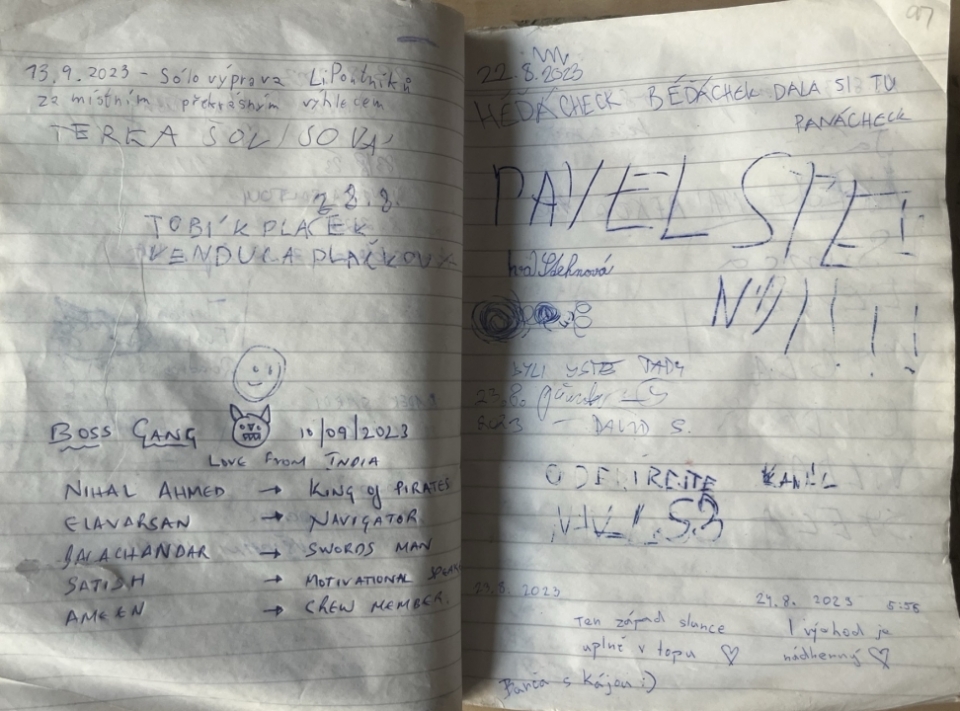 13.9.2023 - Sólo výprava LiPoutníků
za místním překrásným výhledem
TERKA ŠOLISOVÁ
28.8.
TOBÍK PLAČEK
VENDULA PLAČKOVÁ
BOSS GANG 10/09/2023
LOVE FROM INDIA
NIHAL AHMED → KING of PIRATES
ELAVARSAN → NAVIGATOR
BALACHANDAR → SWORDS MAN
SATISH → MOTIVATIONAL
AMEEN → CREW MEMBER.
97
22.8.2023
HÉĎÁCHECK BÉĎÁCHEK DALA SI TU
PANÁCHECK
PAVEL STE
N
Stehnová
BYLI JSTE TADY
23.8.
2023 - DAVID S.
KAMIL
29.8. 2023
Ten západ slunce
uplně v topu ♡
24.8. 2023 5:55
I východ je
nádhernný ♡
Barča s Kájou :)